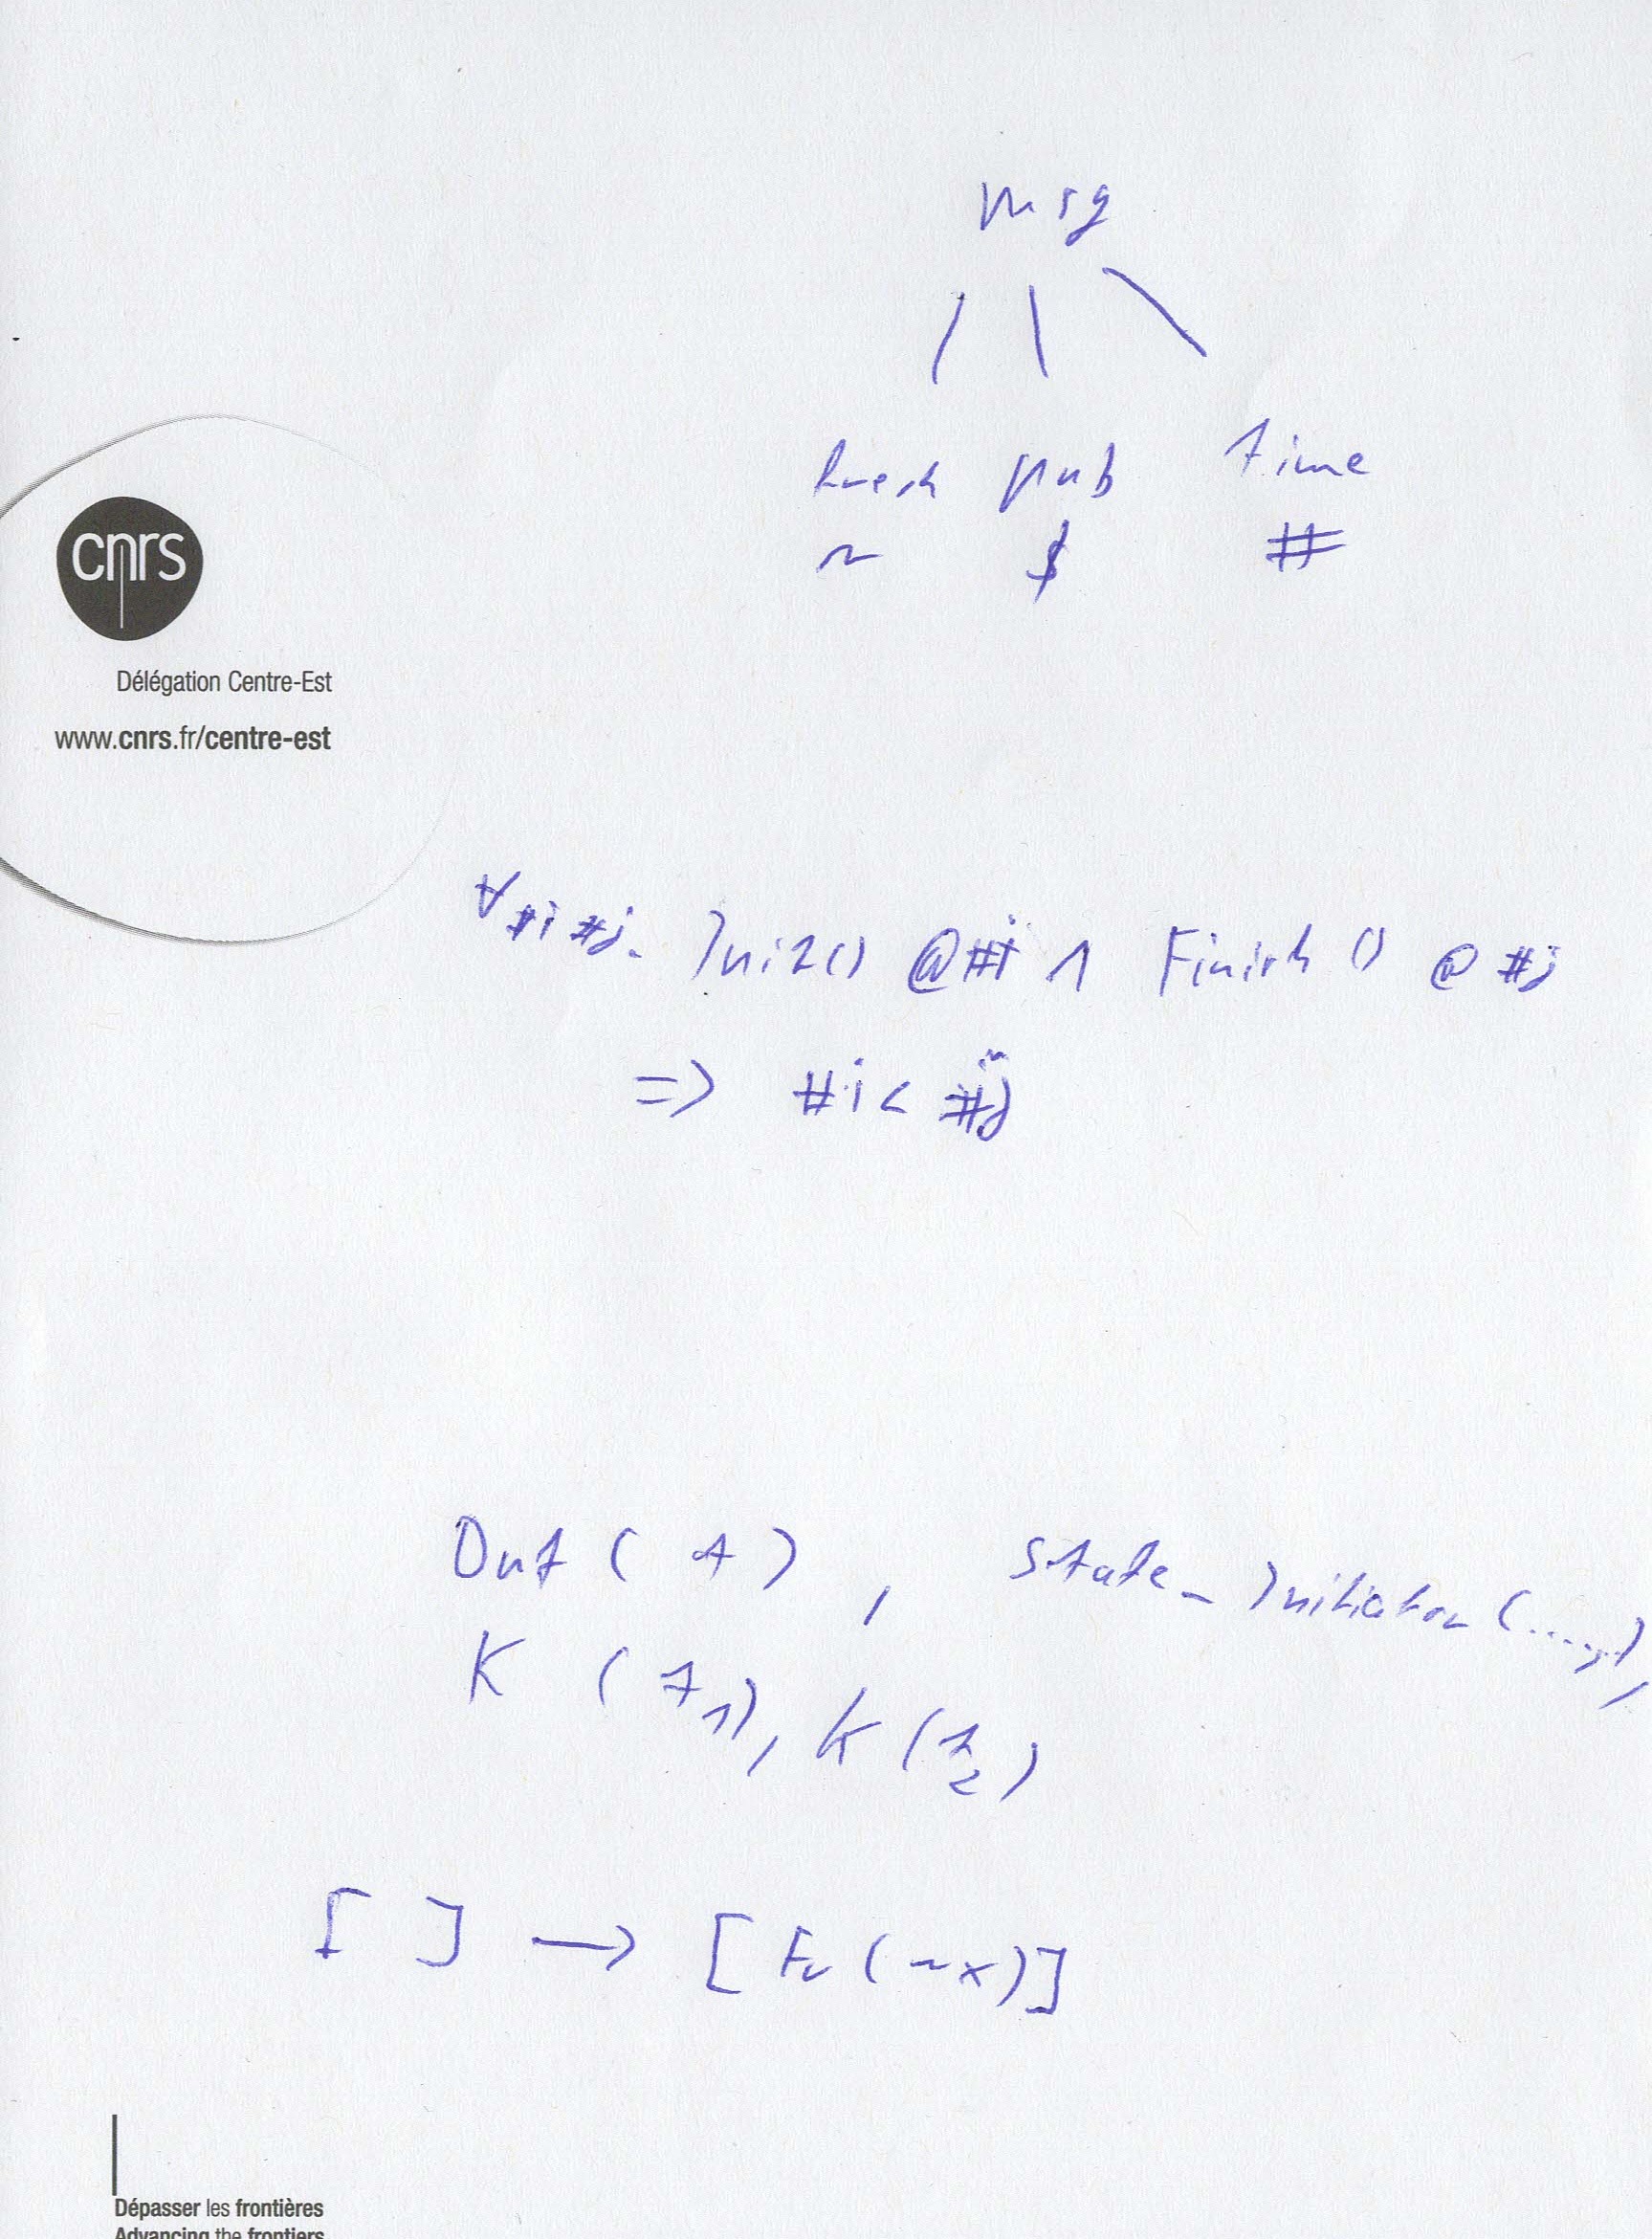 msg
fresh pub time
~ $ #
cnrs
Délégation Centre-Est
www.cnrs.fr/centre-est
∀ #i #j. Init() @ #i ∧ Finish () @ #j
=> #i < #j
Out ( t ) , State_Initiator (.....),
K ( t1), K (t2)
[ ] → [ Fr ( ~x)]
Dépasser les frontières
Advancing the frontiers